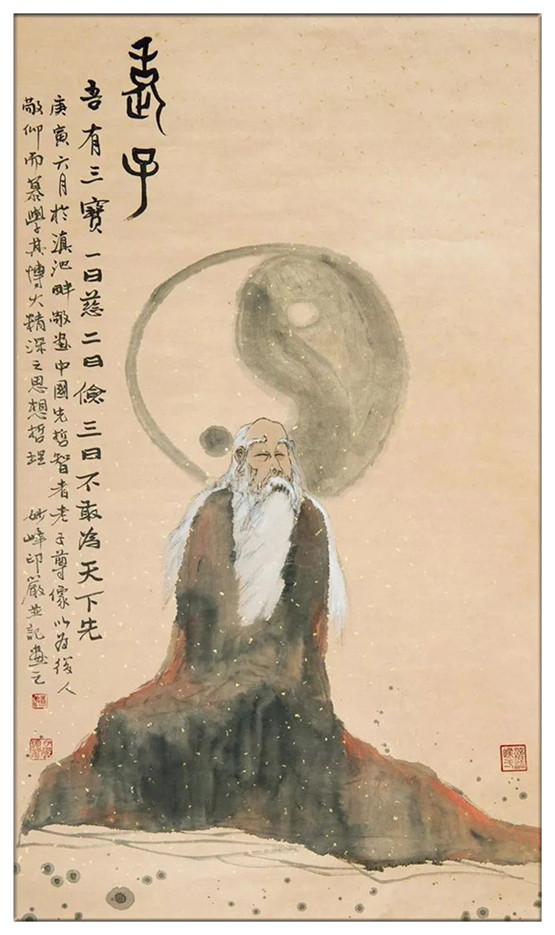 老子
吾有三寶一曰慈二曰儉三曰不敢為天下先
庚寅六月於滇池畔敬畫中國先哲智者老子尊像以為後人
敬仰而慕學其博大精深之思想哲理 妙峰印嚴並記畫之